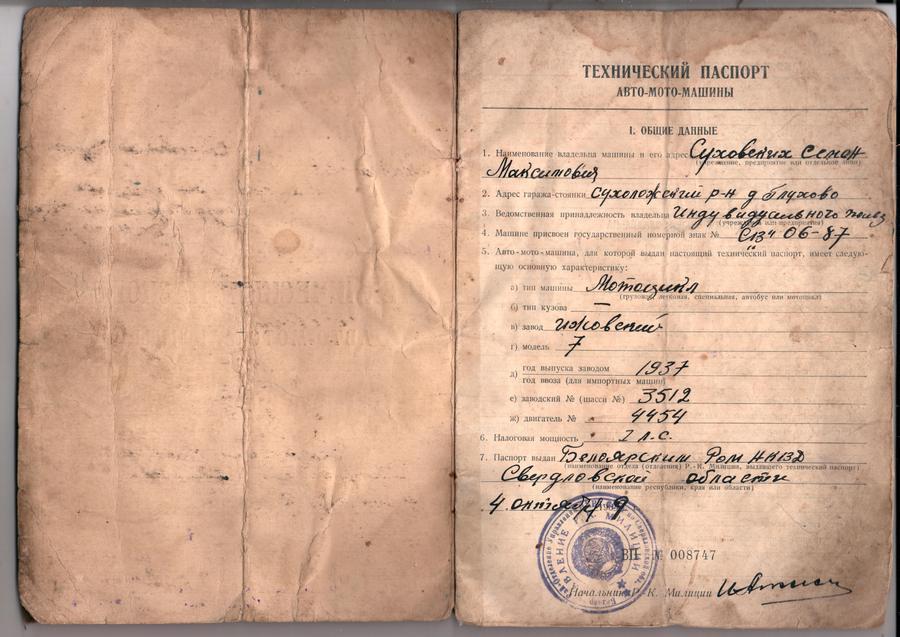 ТЕХНИЧЕСКИЙ ПАСПОРТ
АВТО-МОТО-МАШИНЫ
I. ОБЩИЕ ДАННЫЕ
1. Наименование владельца машины и его адрес Суховских Семон
(учреждение, предприятие или отдельное лицо)
Максимович
2. Адрес гаража-стоянки Сухоложский р-н д Глухово
3. Ведомственная принадлежность владельца Индувидуального
(учреждения или предприятия)
4. Машине присвоен государственный номерной знак № 06-87
5. Авто-мото-машина, для которой выдан настоящий технический паспорт, имеет следую-
щую основную характеристику:
а) тип машины Мотоцикл
(грузовая, легковая, специальная, автобус или мотоцикл)
б) тип кузова —
в) завод ижовский
г) модель 7
д) год выпуска заводом 1937
год ввоза (для импортных машин)
е) заводский № (шасси №) 3512
ж) двигатель № 4454
6. Налоговая мощность 2 л.с.
7. Паспорт выдан Белоярским Ром НКВД
(наименование отдела (отделения) Р.-К. Милиции, выдавшего технический паспорт)
Свердловской области
(наименование республики, края или области)
4 октября
МИЛИЦИИ
ВП № 008747
Начальник Р.-К. Милиции